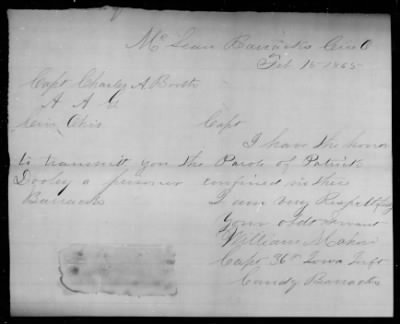 McLean Barracks Cin O
Feb 15 1865
Capt Charley A Booth
A A G
Cin Ohio
Capt
I have the honor
to transmit you the Parole of Patrick
Dooley a prisoner confined in this
Barracks
I am very Respectfully
Your obdt servant
William
Capt 36th Iowa Inft
Comdg Barracks